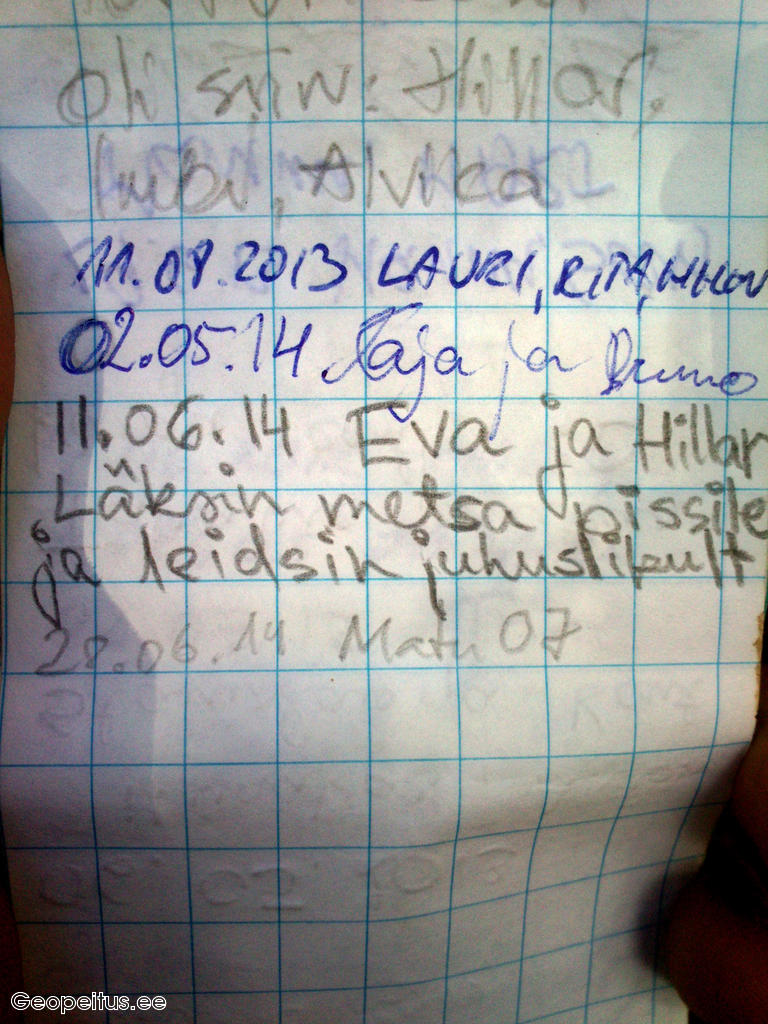 Oli siin: Hillar,
Imbi, Alvica
11.08.2013 LAURI, RITA,
02.05.14 Kaja ja Bruno
11.06.14 Eva ja Hillar
Läksin metsa pissile
ja leidsin juhuslikult
28.06.14 Matu 07
Geopeitus.ee